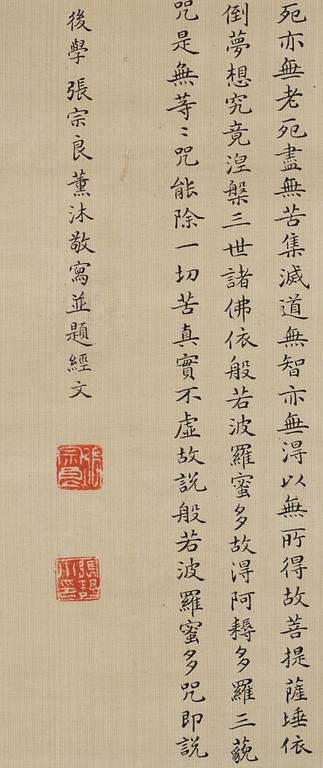 死亦無老死盡無苦集滅道無智亦無得以無所得故菩提薩埵依
倒夢想究竟涅槃三世諸佛依般若波羅蜜多故得阿耨多羅三藐
咒是無等〻咒能除一切苦真實不虛故說般若波羅蜜多咒即說
後學張宗良薰沐敬寫並題經文